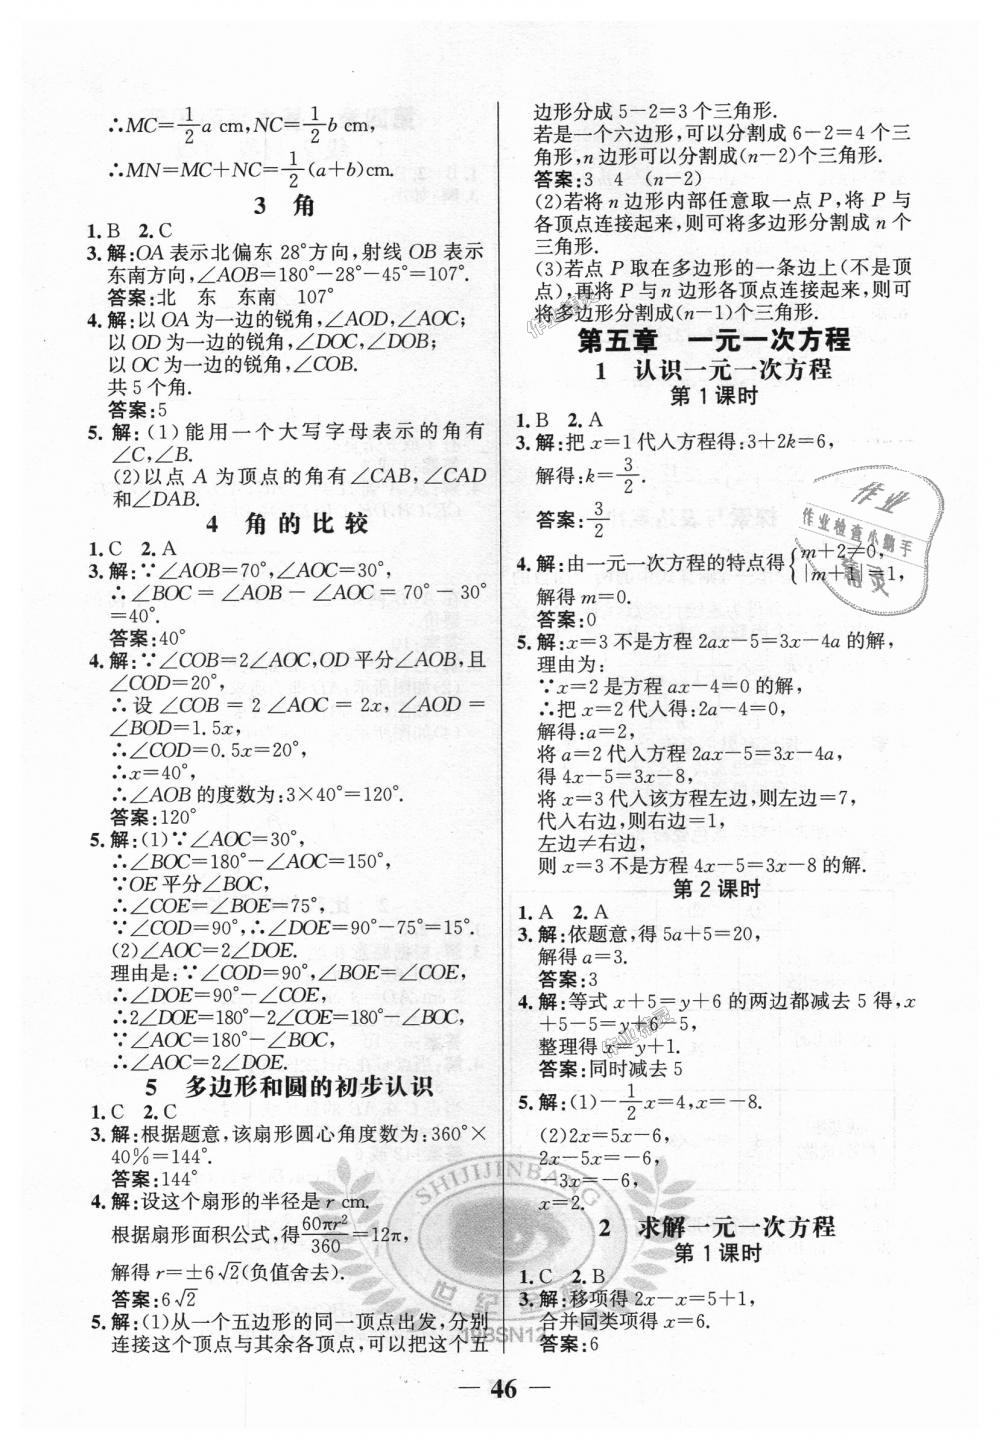 ∴MC=1/2 a cm,NC=1/2 b cm,
∴MN=MC+NC=1/2(a+b)cm.
3 角
1. B 2. C
3. 解:OA 表示北偏东 28°方向,射线 OB 表示
东南方向,∠AOB=180°-28°-45°=107°.
答案:北 东 东南 107°
4. 解:以 OA 为一边的锐角,∠AOD,∠AOC;
以 OD 为一边的锐角,∠DOC,∠DOB;
以 OC 为一边的锐角,∠COB.
共 5 个角.
答案:5
5. 解:(1)能用一个大写字母表示的角有
∠C,∠B.
(2)以点 A 为顶点的角有∠CAB,∠CAD
和∠DAB.
4 角的比较
1. C 2. A
3. 解:∵∠AOB=70°,∠AOC=30°,
∴∠BOC=∠AOB-∠AOC=70°-30°
=40°.
答案:40°
4. 解:∵∠COB=2∠AOC,OD 平分∠AOB,且
∠COD=20°,
∴设∠COB=2∠AOC=2x,∠AOD=
∠BOD=1.5x,
∴∠COD=0.5x=20°,
∴x=40°,
∴∠AOB 的度数为:3×40°=120°.
答案:120°
5. 解:(1)∵∠AOC=30°,
∴∠BOC=180°-∠AOC=150°,
∵OE 平分∠BOC,
∴∠COE=∠BOE=75°,
∵∠COD=90°,∴∠DOE=90°-75°=15°.
(2)∠AOC=2∠DOE.
理由是:∵∠COD=90°,∠BOE=∠COE,
∴∠DOE=90°-∠COE,
∴2∠DOE=180°-2∠COE=180°-∠BOC,
∵∠AOC=180°-∠BOC,
∴∠AOC=2∠DOE.
5 多边形和圆的初步认识
1. C 2. C
3. 解:根据题意,该扇形圆心角度数为:360°×
40%=144°.
答案:144°
4. 解:设这个扇形的半径是 r cm.
根据扇形面积公式,得60πr²/360=12π,
解得 r=±6√2(负值舍去).
答案:6√2
5. 解:(1)从一个五边形的同一顶点出发,分别
连接这个顶点与其余各顶点,可以把这个五
边形分成 5-2=3 个三角形.
若是一个六边形,可以分割成 6-2=4 个三
角形,n 边形可以分割成(n-2)个三角形.
答案:3 4 (n-2)
(2)若将 n 边形内部任意取一点 P,将 P 与
各顶点连接起来,则可将多边形分割成 n 个
三角形.
(3)若点 P 取在多边形的一条边上(不是顶
点),再将 P 与 n 边形各顶点连接起来,则可
将多边形分割成(n-1)个三角形.
第五章 一元一次方程
1 认识一元一次方程
第 1 课时
1. B 2. A
3. 解:把 x=1 代入方程得:3+2k=6,
解得:k=3/2.
答案:3/2
4. 解:由一元一次方程的特点得{m+2≠0,
|m+1|=1,
解得 m=0.
答案:0
5. 解:x=3 不是方程 2ax-5=3x-4a 的解,
理由为:
∵x=2 是方程 ax-4=0 的解,
∴把 x=2 代入得:2a-4=0,
解得:a=2,
将 a=2 代入方程 2ax-5=3x-4a,
得 4x-5=3x-8,
将 x=3 代入该方程左边,则左边=7,
代入右边,则右边=1,
左边≠右边,
则 x=3 不是方程 4x-5=3x-8 的解.
第 2 课时
1. A 2. A
3. 解:依题意,得 5a+5=20,
解得 a=3.
答案:3
4. 解:等式 x+5=y+6 的两边都减去 5 得,x
+5-5=y+6-5,
整理得 x=y+1.
答案:同时减去 5
5. 解:(1)-1/2 x=4,x=-8.
(2)2x=5x-6,
2x-5x=-6,
-3x=-6,
x=2.
2 求解一元一次方程
第 1 课时
1. C 2. B
3. 解:移项得 2x-x=5+1,
合并同类项得 x=6.
答案:6
— 46 —
作业
作业检查小助手
精灵
作业精灵
SHIJIJINBANG
世纪金榜
198SN12